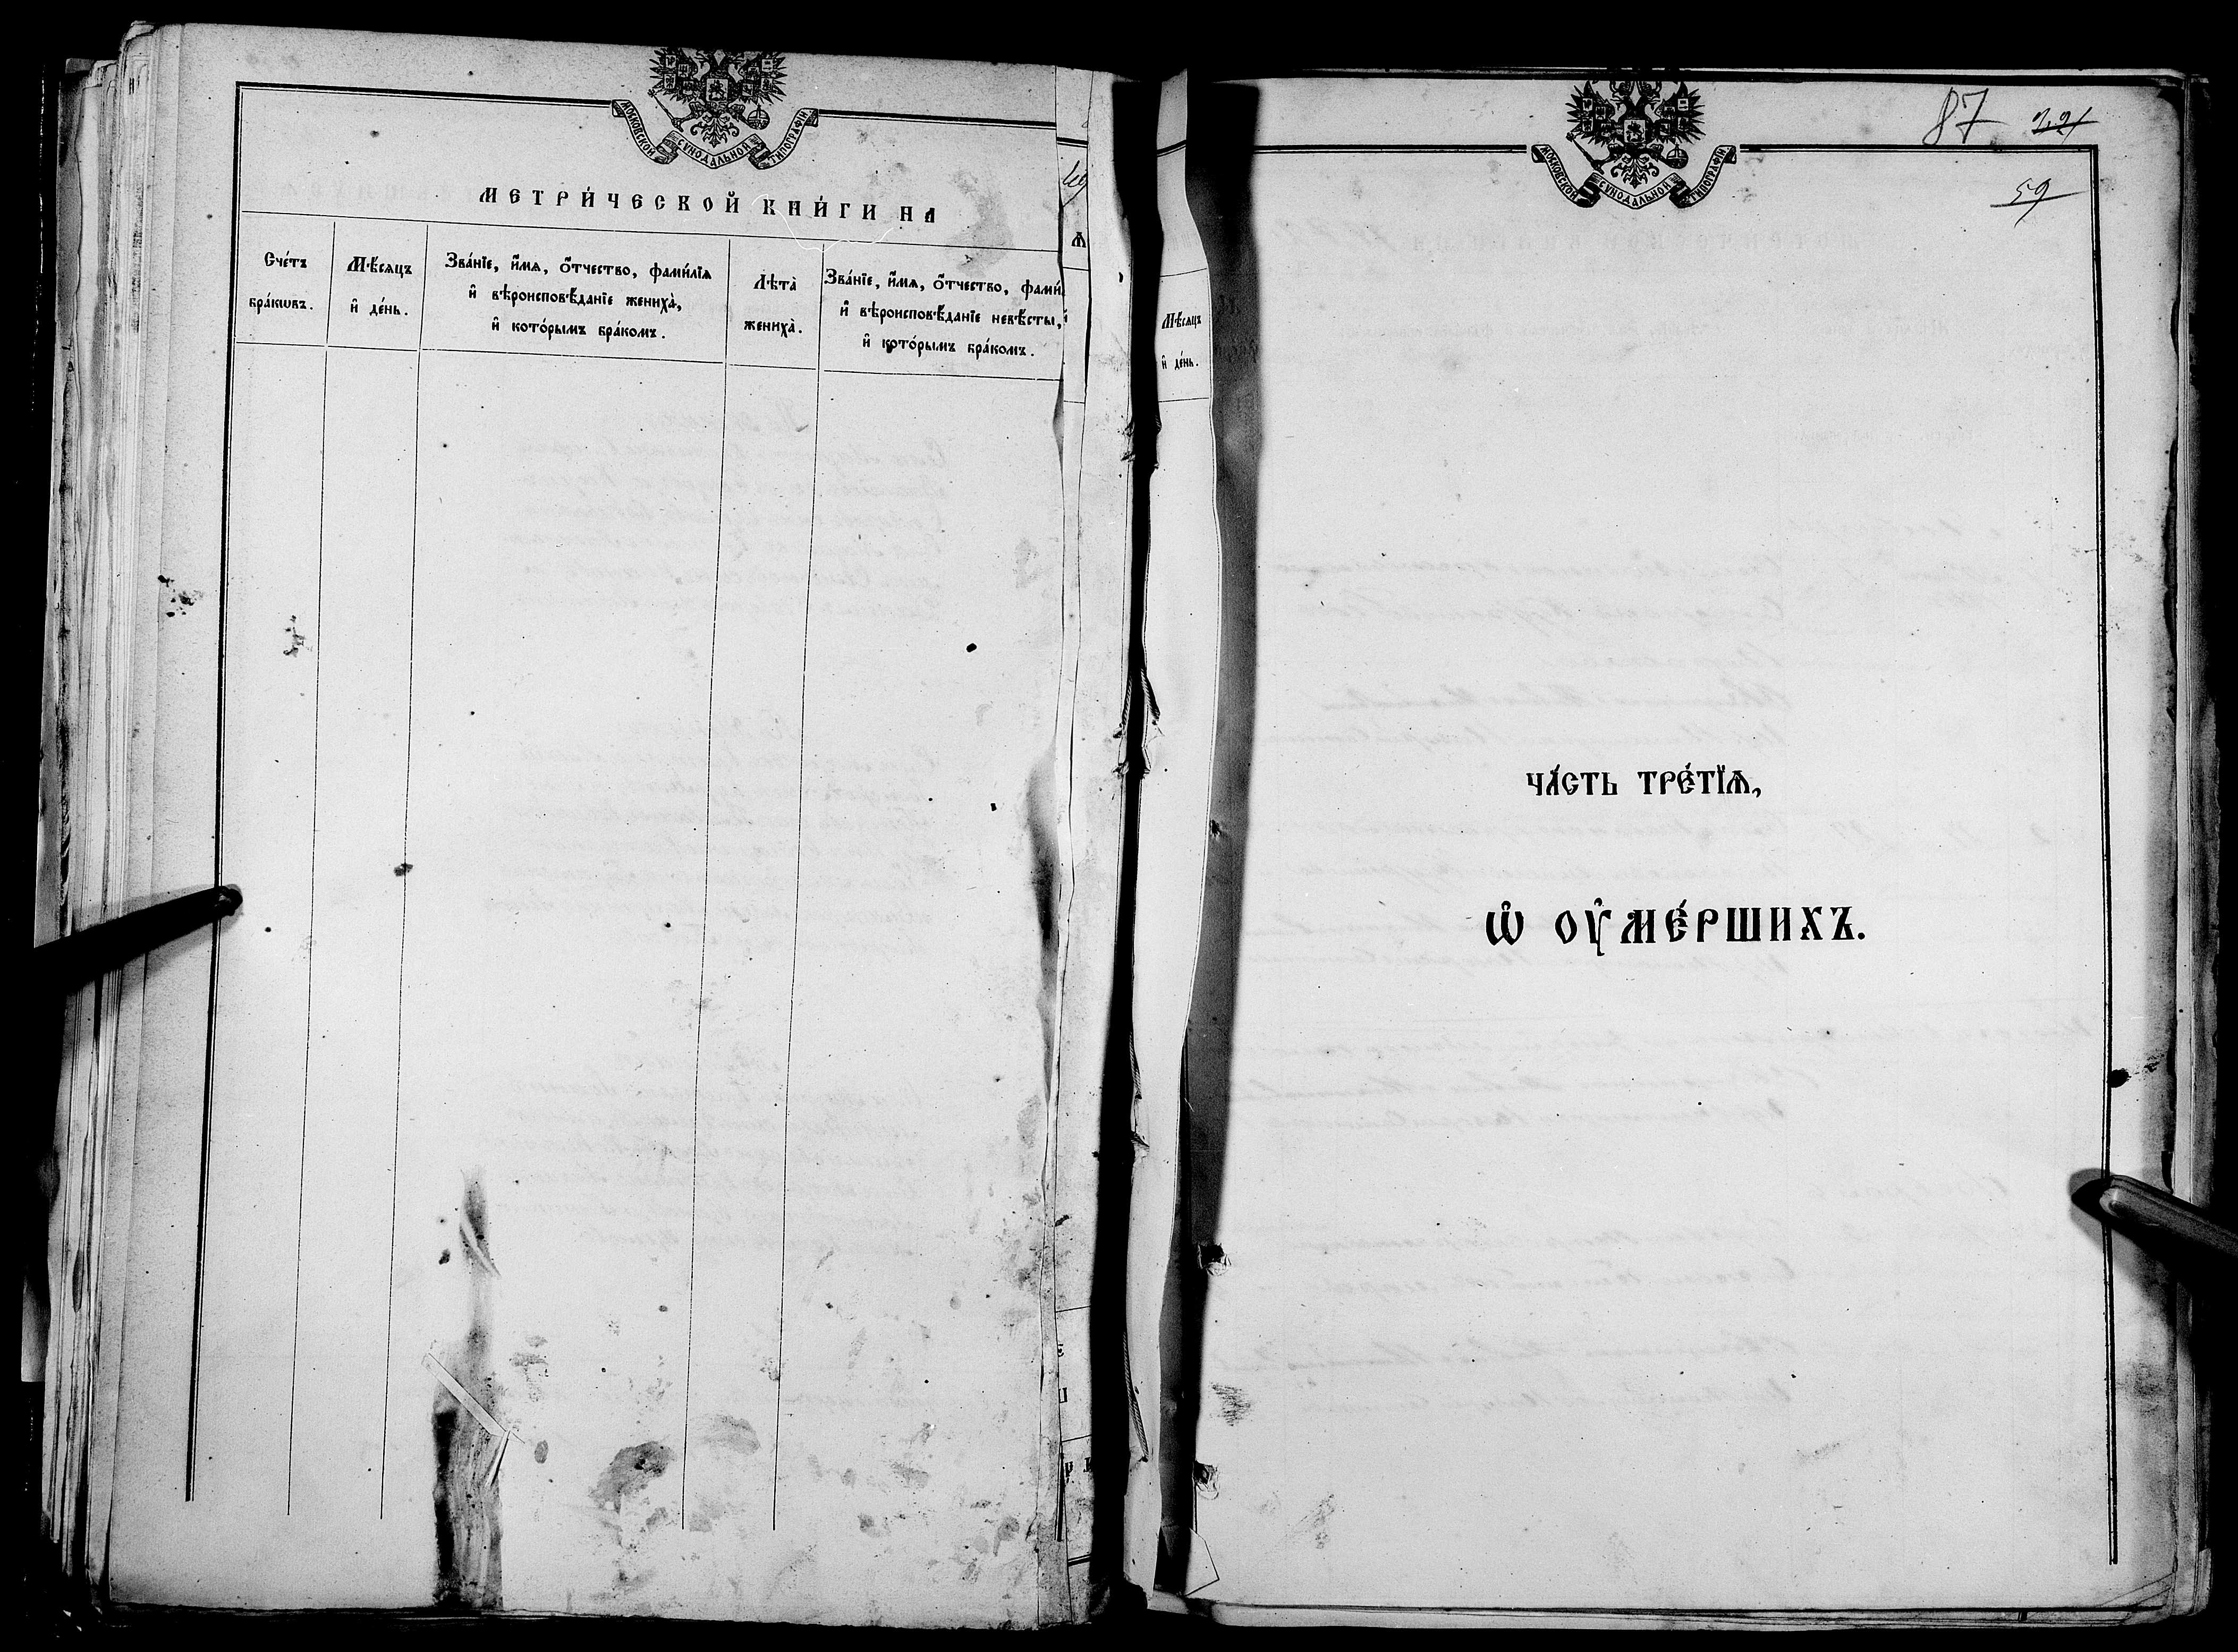 МОСКОВСКОЙ СУНОДАЛЬНОЙ ТИПОГРАФІИ
МЕТРИ́ЧЕСКОЙ КНИ́ГИ НА
Сче́тъ
бра́кѡвъ.
Мѣ́сяцъ
и҆ де́нь.
Зва́нїе, и҆́мя, ѻ҆́тчество, фами́лїя
и҆ вѣроисповѣ́данїе жениха̀,
и҆ кото́рымъ бра́комъ.
Лѣта̀
жениха̀.
Зва́нїе, и҆́мя, ѻ҆́тчество, фами́
и҆ вѣроисповѣ́данїе невѣ́сты,
и҆ кото́рымъ бра́комъ.
Мѣ́сяцъ
и҆ де́нь.
МОСКОВСКОЙ СУНОДАЛЬНОЙ ТИПОГРАФІИ
87
59
ЧА́СТЬ ТРЕ́ТЇѦ,
Ѡ҆ ОУ҆МЕ́РШИХЪ.